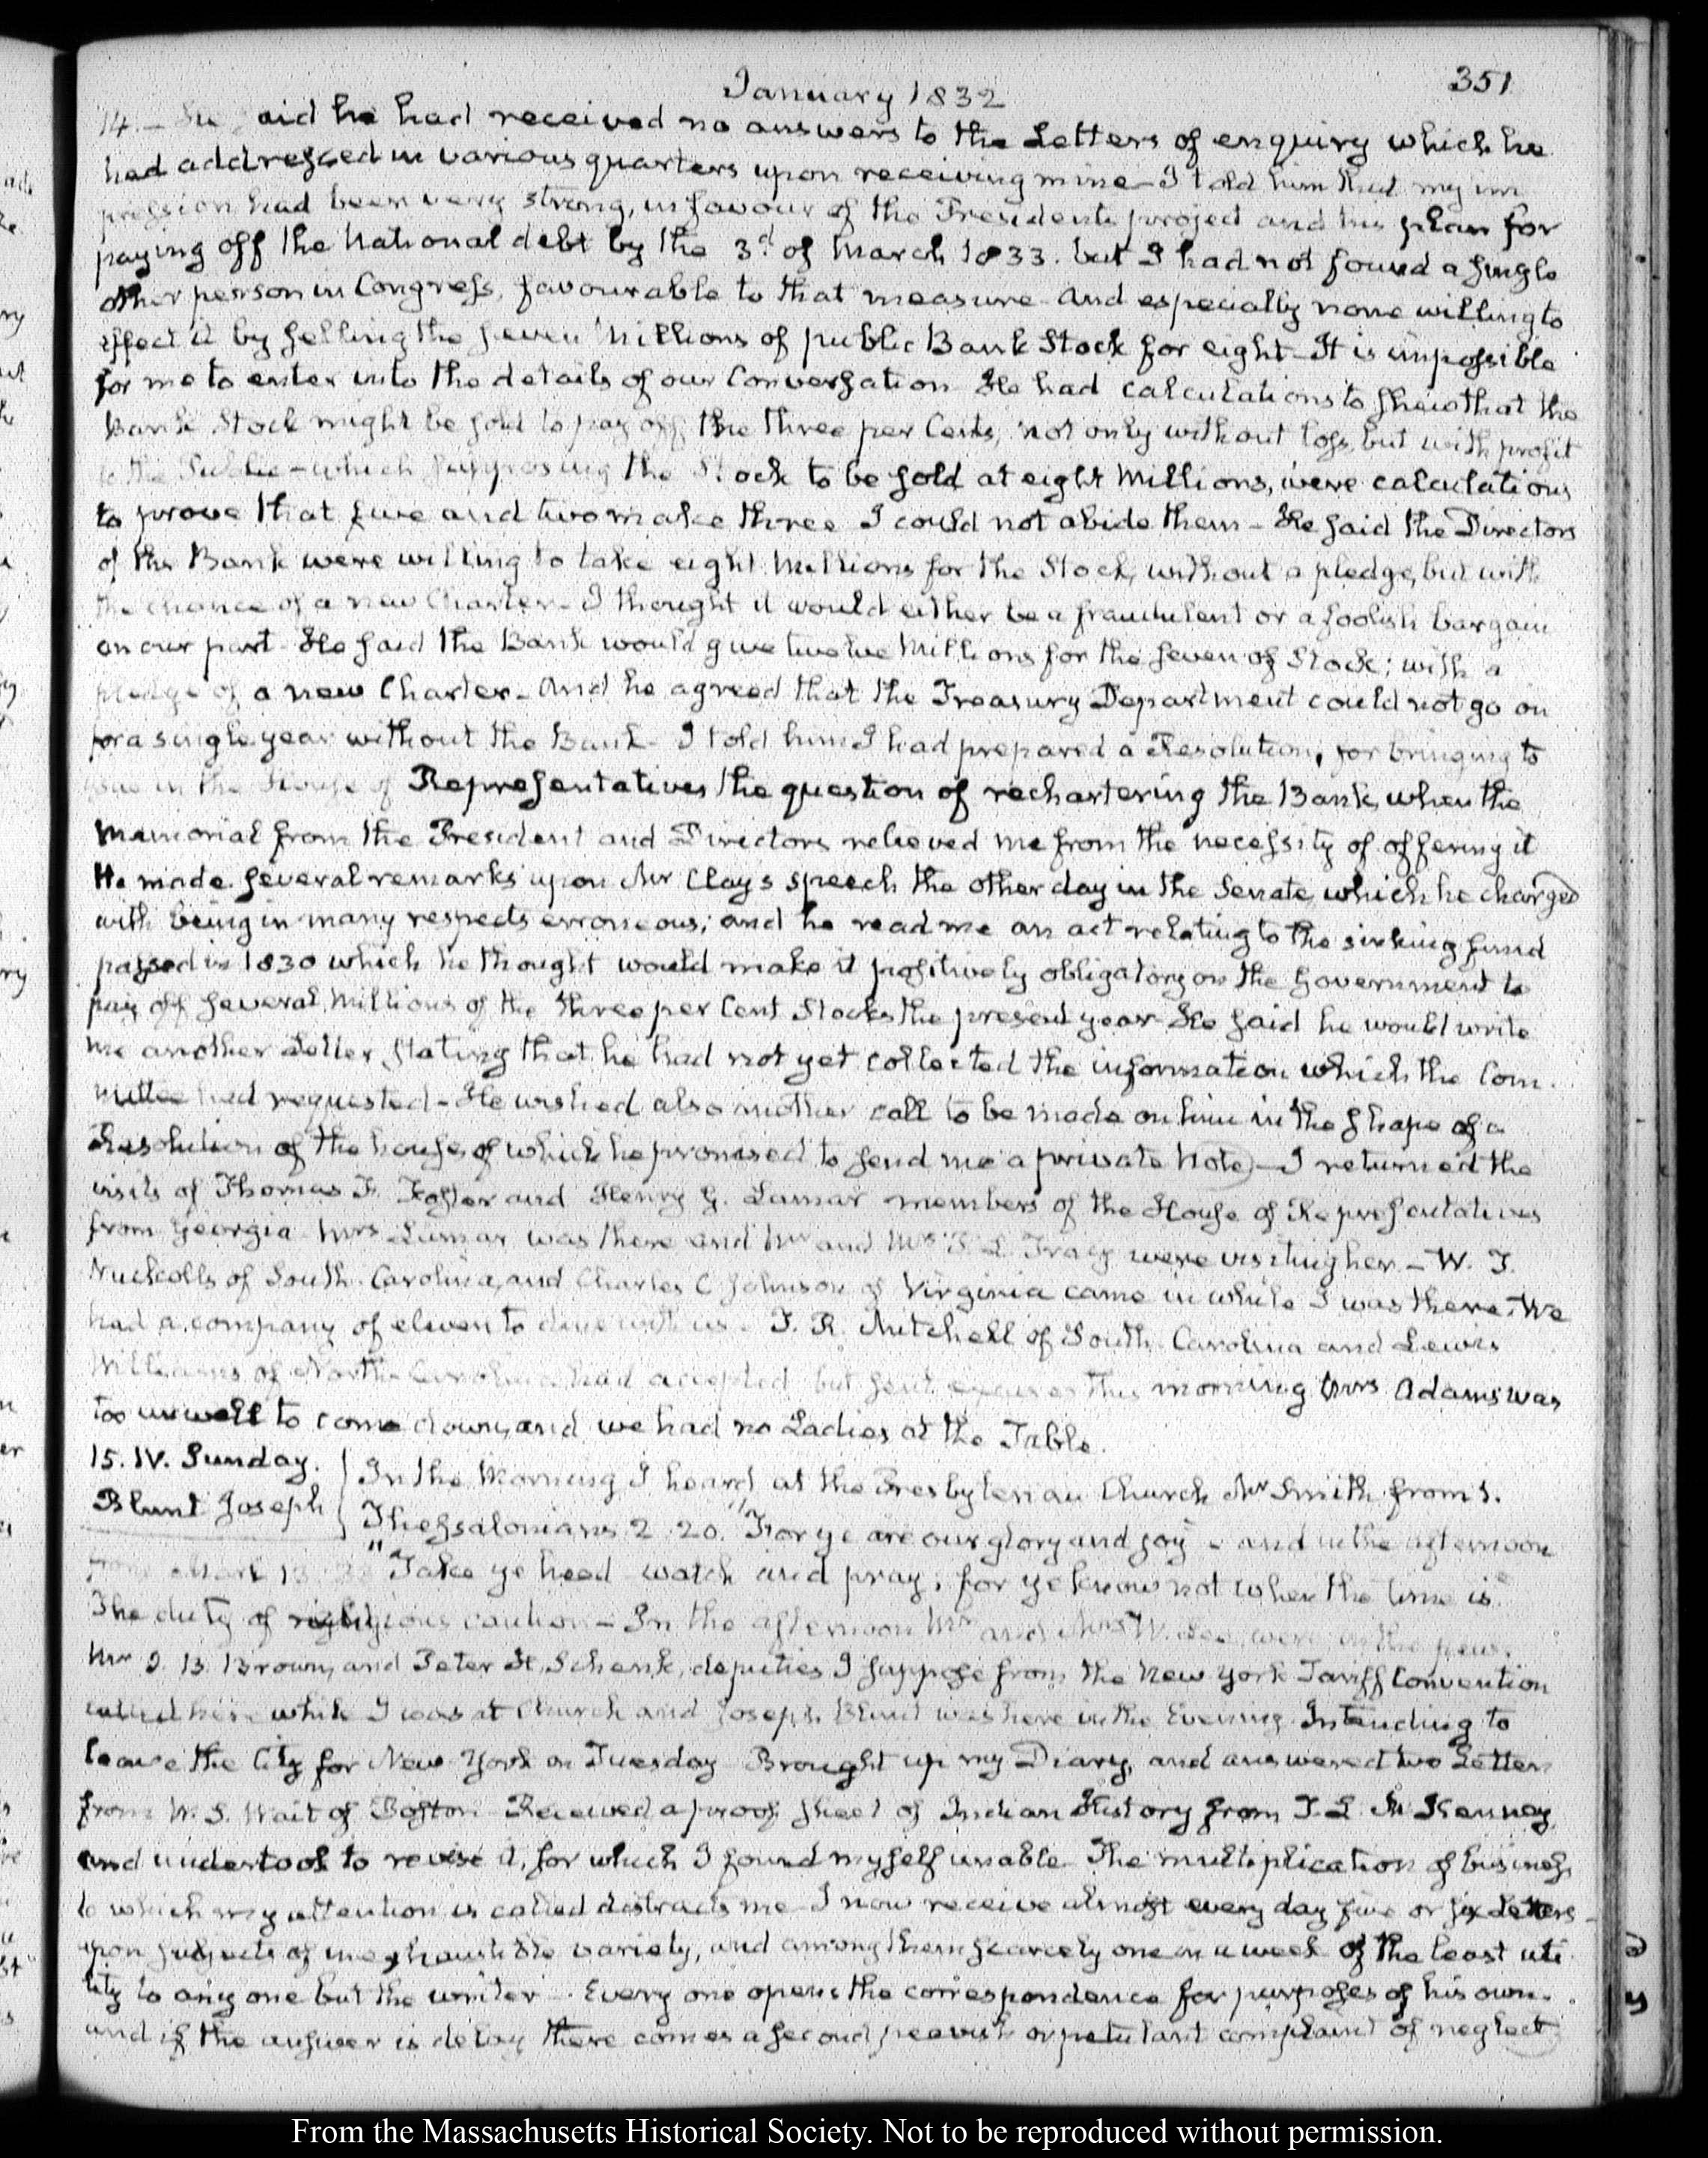 351
January 1832
14.— He said he had received no answers to the Letters of enquiry which he
had addressed in various quarters upon receiving mine—I told him that my im
pression had been very strong, in favour of the Presidents project and his plan for
paying off the National debt by the 3d. of March 1833. but I had not found a single
other person in Congress, favourable to that measure and especially none willing to
effect it by selling the seven Millions of public Bank Stock for eight—It is impossible
for me to enter into the details of our Conversation He had calculations to shew that the
Bank Stock might be sold to pay off the three per Cents, not only without loss, but with profit
to the Public—which supposing the Stock to be sold at eight Millions, were calculations
to prove that five and two make three I could not abide them—He said the Directors
of the Bank were willing to take eight Millions for the Stock, without a pledge, but with
the chance of a new Charter—I thought it would either be a fraudulent or a foolish bargain
on our part—He said the Bank would give twelve Millions for the seven of Stock; with a
pledge of a new Charter—And he agreed that the Treasury Department could not go on
for a single year without the Bank—I told him I had prepared a Resolution, for bringing to
issue in the House of Representatives the question of rechartering the Bank, when the
Memorial from the President and Directors relieved me from the necessity of offering it
He made several remarks upon Mr Clay's speech the other day in the Senate, which he charged
with being in many respects erroneous; and he read me an act relating to the sinking fund
passed in 1830 which he thought would make it positively obligatory on the Government to
pay off several Millions of the three per Cent Stocks the present year—He said he would write
me another Letter, stating that he had not yet collected the information which the Com
mittee had requested—He wished also another call to be made on him in the shape of a
Resolution of the house, of which he promised to send me a private Note—I returned the
visits of Thomas F. Foster and Henry G. Lamar members of the House of Representatives
from Georgia—Mrs Lamar was there and Mr and Mrs Tracy were visiting her—W. T.
Nuckolls of South-Carolina, and Charles C Johnson of Virginia came in while I was there. We
had a company of eleven to dine with us—T. R. Mitchell of South-Carolina and Lewis
Williams of North-Carolina had accepted but sent excuses this morning Mrs Adams was
too unwell to come down, and we had no Ladies at the Table.
15. IV. Sunday. In the Morning I heard at the Presbyterian Church Mr Smith from 1.
Blunt Joseph Thessalonians 2. 20. "For ye are our glory and joy"—and in the afternoon
from Mark 13 "Take ye heed watch and pray; for ye know not when the time is"
The duty of religious caution—In the afternoon Mr and Mrs W. Lee, were in the pew.
Mr J. B. Brown, and Peter H. Schenk, deputies I suppose from the New York Tariff Convention
called here while I was at Church and Joseph Blunt was here in the Evening—Intending to
leave the City for New-York on Tuesday Brought up my Diary, and answered two Letters
from W. S. Wait of Boston—Received a proof sheet of Indian History from T. L. McKenney
and undertook to revise it, for which I found myself unable. The multiplication of business
to which my attention is called distracts me—I now receive almost every day five or six Letters
upon subjects of inexhaustible variety, and among them scarcely one in a week of the least uti
lity to any one but the writer—Every one opens the correspondence for purposes of his own.
and if the answer is delay there comes a second peevish or petulant complaint of neglect
From the Massachusetts Historical Society. Not to be reproduced without permission.